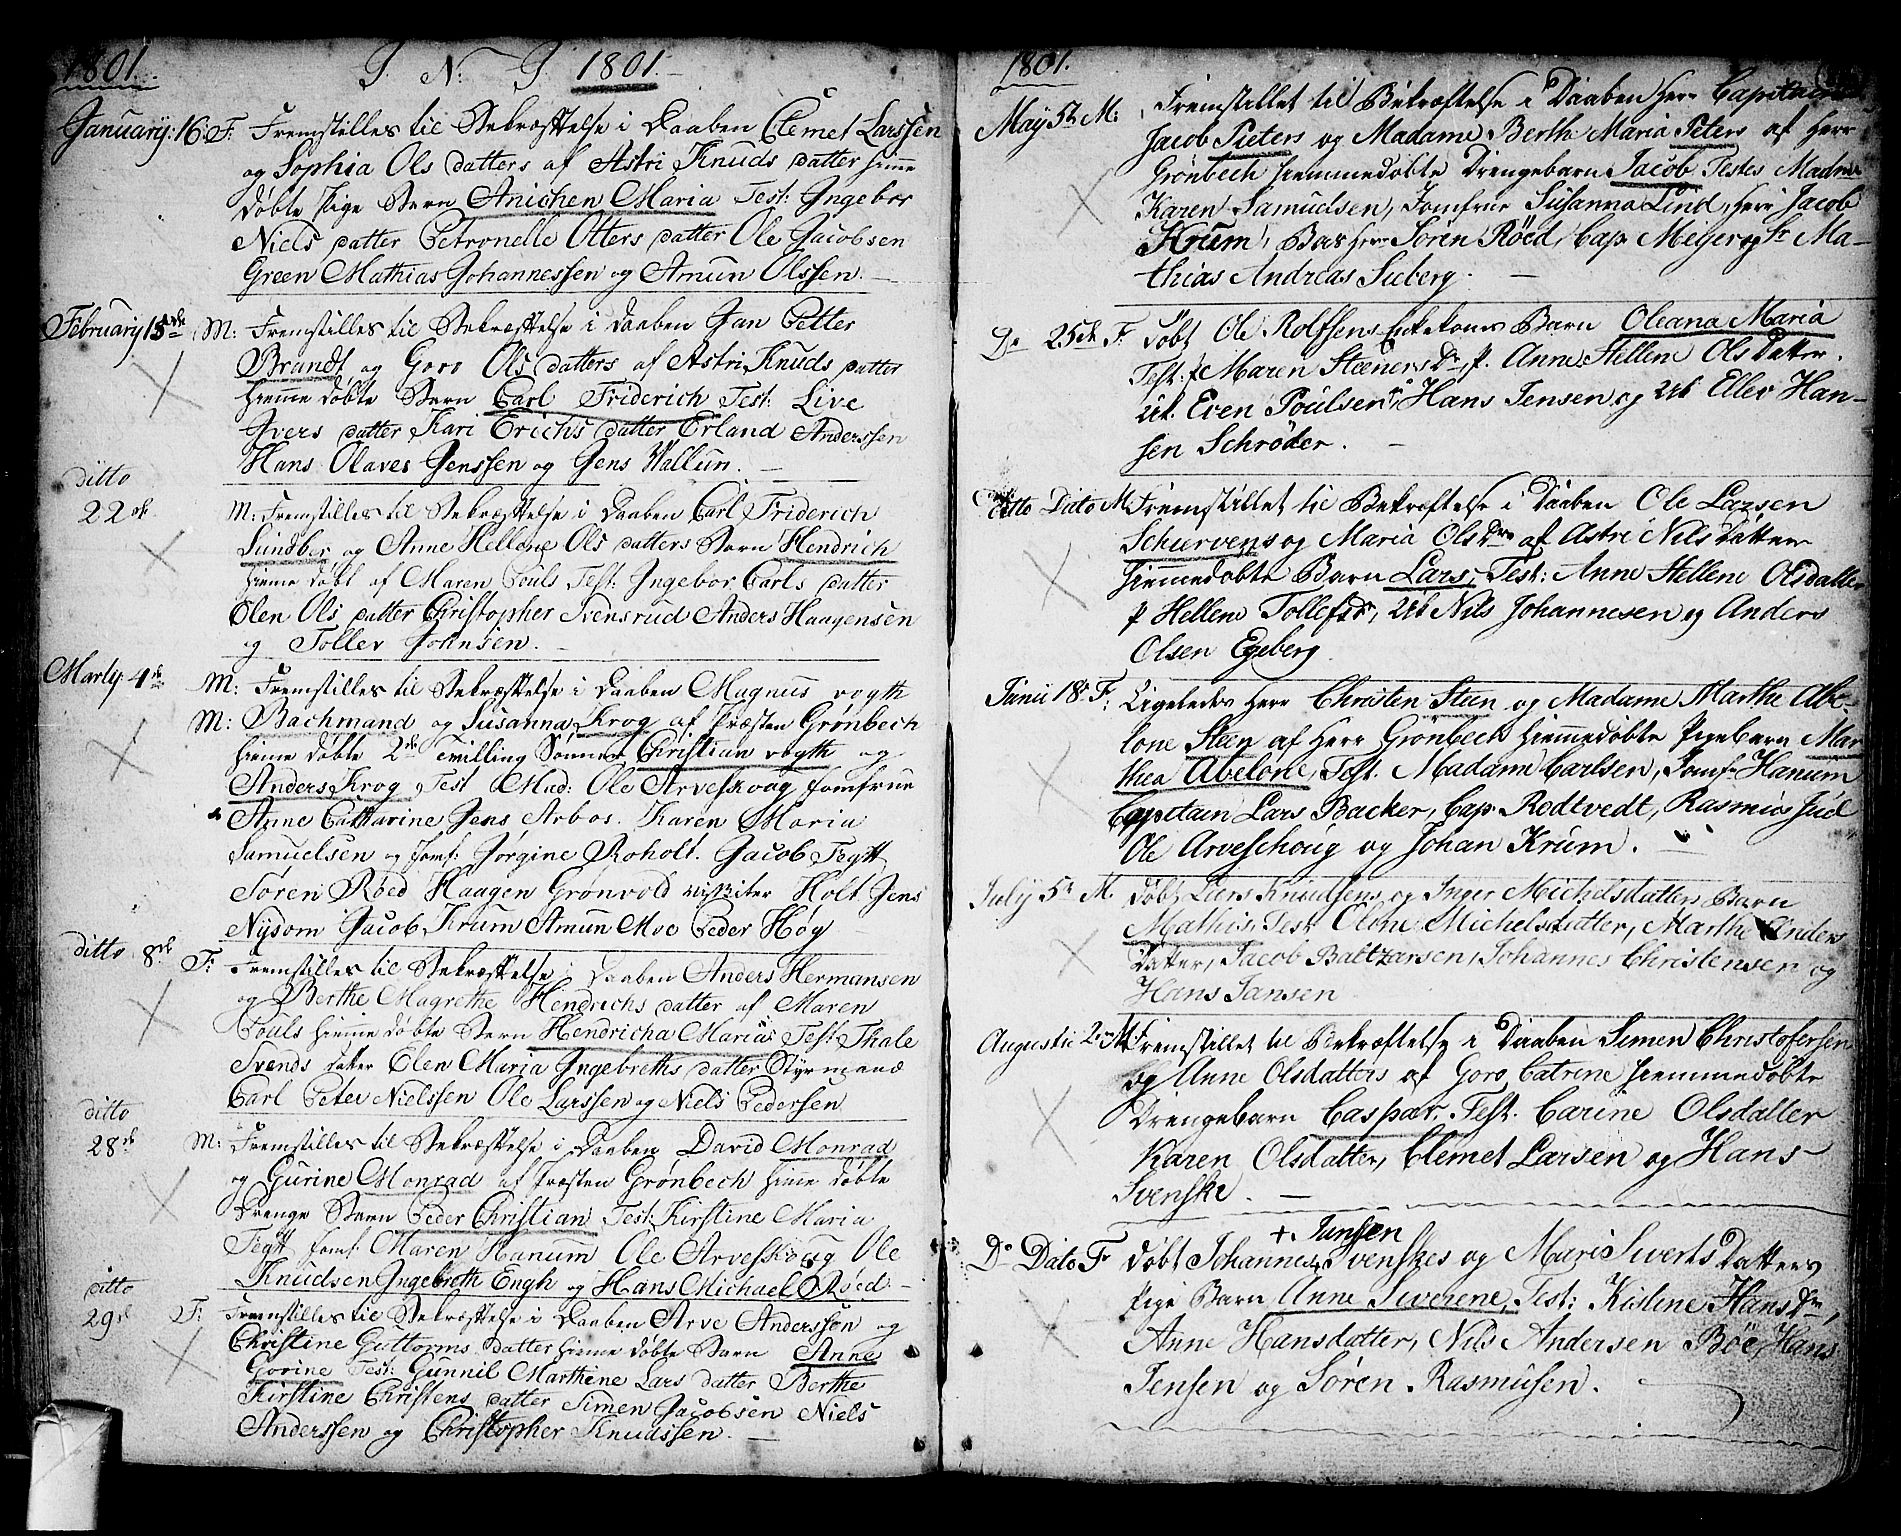 1801. J. N. J. 1801.
January: 16. F. Fremstilles til Bekræftelse i Daaben Clemet Larssen
og Sophia Ols datters af Astri Knuds datter hiemme
døbte Pige Barn Anichen Maria Test: Ingebor
Niels datter Petronelle Otters datter Ole Jacobsen
Green Mathias Johannessen og Amun Olssen.
February 15de M: Fremstilles til Bekræftelse i Daaben Jan Petter
Brandt og Goro Ols datters af Astri Knuds datter
hiemme døbte Barn Carl Friderich Test: Live
Ivers datter Kari Erichs datter Erland Anderssen
Hans Olaves Jenssen og Jens Wallun.
ditto
22de M: Fremstilles til Bekræftelse i Daaben Carl Friderich
Sundber og Anne Hellene Ols datters Barn Hendrich
hieme døbt af Maren Pouls Test: Ingebor Carls datter
Olen Ols datter Christopher Svensrud Anders Haagensen
og Toller Johnsen.
Marty: 4de M: Fremstilles til Bekræftelse i Daaben Magnus vogth
M: Bachmand og Susanna Krog af Præsten Grønbech
hieme døbte 2de Tvilling Sønner Christian vogth og
Anders Krog, Test Mad: Ole Arveskoug Jomfrue
Anne Catharine Jens Arbos. Karen Maria
Samuelsen og Jomf: Jørgine Roholt. Jacob Tegtt
Søren Røed Haagen Grønvold Holt Jens
Nysom Jacob Krum Amun Moe Peder Høg
ditto 8de F: Fremstilles til Bekræftelse i Daaben Anders Hermansen
og Berthe Magrethe Hendrichs datter af Maren
Pouls hieme døbte Barn Hendricha Maria Test: Thale
Svends datter Elen Maria Ingebreths datter Styrmand
Carl Peter Nielssen Ole Larssen og Niels Pedersen
ditto
28de M: Fremstilles til Bekræftelse i Daaben David Monrad
og Gurine Monrad af Præsten Grønbech hieme døbte
Drenge Barn Peder Christian Test: Kirstine Maria
Tegtt Jomf: Maren Hanum Ole Arveskoug Ole
Knudsen Ingebreth Engh og Hans Michael Røed
ditto
29de F: Fremstilles til Bekræftelse i Daaben Arve Anderssøn og
Christine Guttorms datter hieme døbte Barn Anne
Gorine Test: Gunnil Marthine Lars datter Berthe
Kirstine Christens datter Simen Jacobsen Niels
Anderssen og Christopher Knudssen.
1801.
May 5te M: Fremstillet til Bekræftelse i Daaben Herr Capitain
Jacob Pieters og Madame Berthe Maria Peters af Herr
Grønbech hiemmedøbte Drengebarn Jacob Testes Madme
Karen Samuelsen, Jomfrue Susanna Lind, Herr Jacob
Krum, Søren Røed, Cap Meyer og Sr Ma-
thias Andreas Sieberg.
Do 25de F. døbt Ole Rolfsens Enkekones Barn Oleana Maria
Test: P Maren Steeners Dr, P. Anne Hellene Olsdatter.
Uk. Even Poulsen, Hans Jensen og Uk Ellev Han-
sen Schrøder.
ditto Dato M Fremstillet til Bekræftelse i Daaben Ole Larsen
Schiervens og Maria Ols Drs af Astri Nilsdatter
hiemmedøbte Barn Lars, Test: Anne Hellene Olsdatter
P Hellene Tollefs, Uk Nils Johannesen og Anders
Olsen Egeberg
Junii 18 F: Ligeledes Herr Christen Steen og Madame Marthe Abe-
lone Steen af Herr Grønbech hiemmedøbte Pigebarn Mar
thea Abelone, Test. Madame Carlsen, Jomfr Hanum
Capitain Lars Backer, Cap Rodtvedt, Rasmus Juel
Ole Arveschoug og Johan Krum.
July 5te M. døbt Lars Knudsens og Inger Michelsdatters Barn
Mathis, Test Elene Michelsdatter, Marthe Anders
Datter, Jacob Baltzarsen, Johannes Christensen og
Hans Jansen
Augustii 2den M Fremstillet til Bekræftelse i Daaben Simen Christofersen
og Anne Olsdatters af Goro Catrine hiemmedøbte
Drengebarn Caspar. Test. Carine Olsdatter
Karen Olsdatter, Clemet Larsen og Hans
Svenske.
+ Jansen
Do Dato F døbt Johannes Svenskes og Mari Siverts Datters
Pige Barn Anne Siverene, Test: Kistene Hans Dr,
Anne Hansdatter, Nils Andersen Böe, Hans
Jensen og Søren Rasmusen.